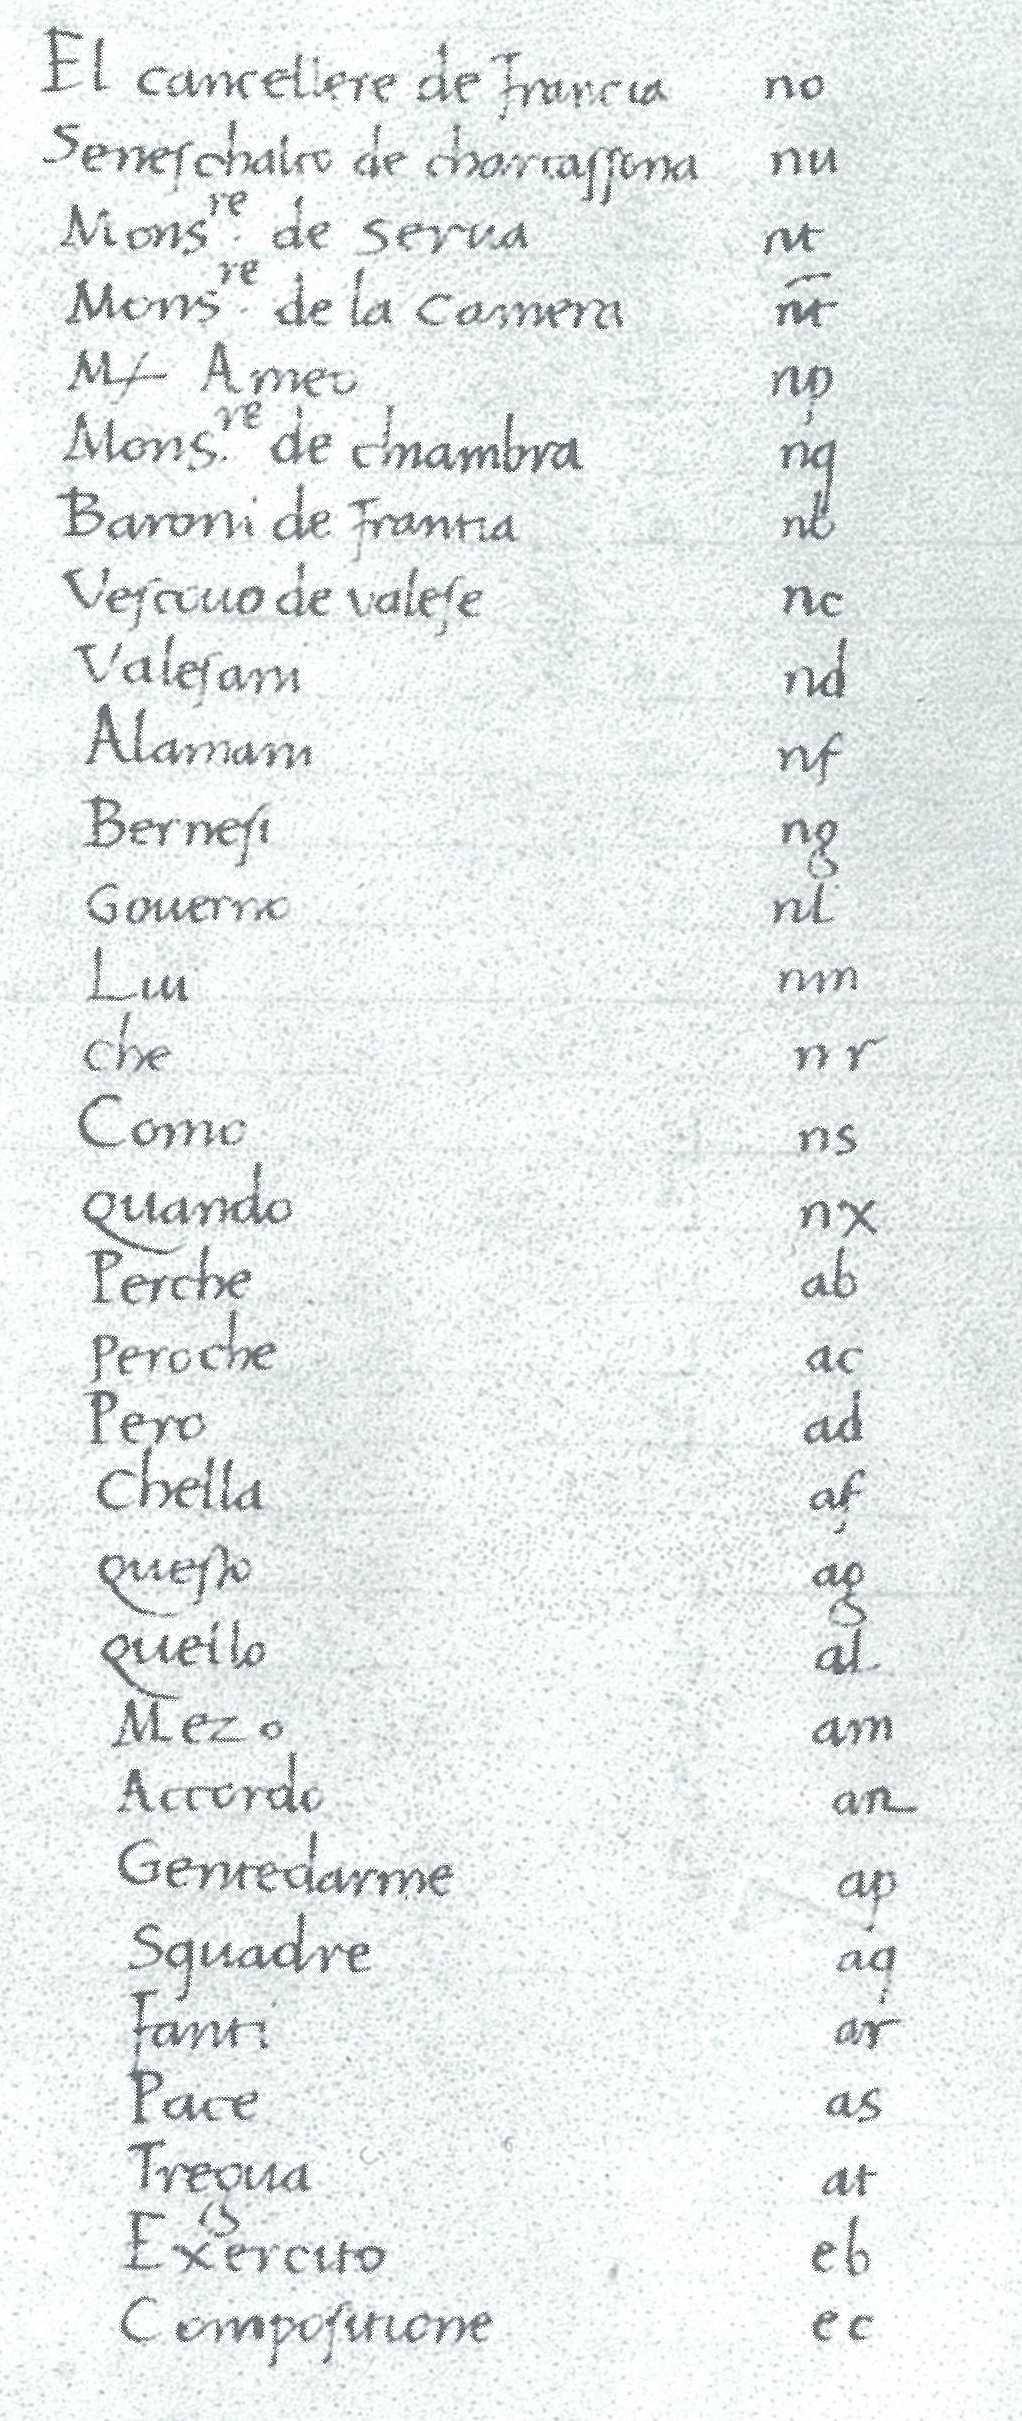 El cancellere de Francia no
Seneschalco de charcassona nu
Mons.re de Serua nt
Mons.re de la Camera n̄t
M+ Ameo np
Mons.re de chnambra nq
Baroni de Frantia nb
Vescouo de valese nc
Valesani nd
Alamani nf
Bernesi ng
Gouerno nl
Lui nm
che nr
Como ns
quando nx
Perche ab
peroche ac
Pero ad
Chella af
questo ag
quello al
Mezo am
Accordo an
Gentedarme ap
Squadre aq
Fanti ar
Pace as
Tregua at
Exercito eb
Compositione ec